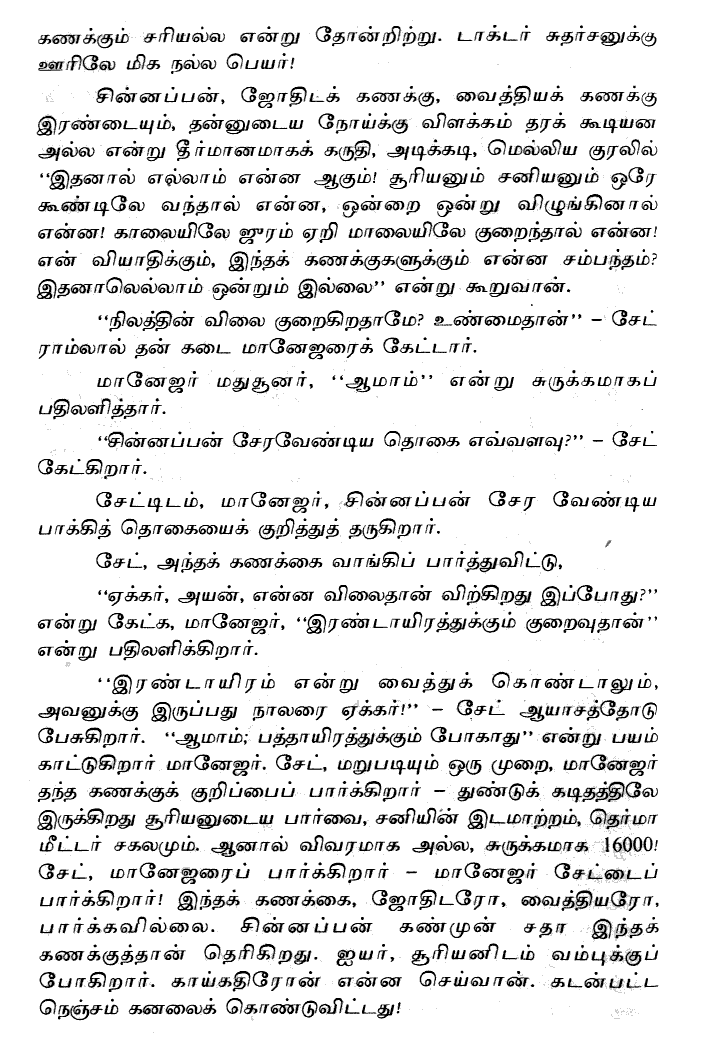 கணக்கும் சரியல்ல என்று தோன்றிற்று. டாக்டர் சுதர்சனுக்கு
ஊரிலே மிக நல்ல பெயர்!
சின்னப்பன், ஜோதிடக் கணக்கு, வைத்தியக் கணக்கு
இரண்டையும், தன்னுடைய நோய்க்கு விளக்கம் தரக் கூடியன
அல்ல என்று தீர்மானமாகக் கருதி, அடிக்கடி, மெல்லிய குரலில்
‘‘இதனால் எல்லாம் என்ன ஆகும்! சூரியனும் சனியனும் ஒரே
கூண்டிலே வந்தால் என்ன, ஒன்றை ஒன்று விழுங்கினால்
என்ன! காலையிலே ஜுரம் ஏறி மாலையிலே குறைந்தால் என்ன!
என் வியாதிக்கும், இந்தக் கணக்குகளுக்கும் என்ன சம்பந்தம்?
இதனாலெல்லாம் ஒன்றும் இல்லை’’ என்று கூறுவான்.
‘‘நிலத்தின் விலை குறைகிறதாமே? உண்மைதான்’’ – சேட்
ராம்லால் தன் கடை மானேஜரைக் கேட்டார்.
மானேஜர் மதுசூனர், ‘‘ஆமாம்’’ என்று சுருக்கமாகப்
பதிலளித்தார்.
‘‘சின்னப்பன் சேரவேண்டிய தொகை எவ்வளவு?’’ – சேட்
கேட்கிறார்.
சேட்டிடம், மானேஜர், சின்னப்பன் சேர வேண்டிய
பாக்கித் தொகையைக் குறித்துத் தருகிறார்.
சேட், அந்தக் கணக்கை வாங்கிப் பார்த்துவிட்டு,
‘‘ஏக்கர், அயன், என்ன விலைதான் விற்கிறது இப்போது?’’
என்று கேட்க, மானேஜர், ‘‘இரண்டாயிரத்துக்கும் குறைவுதான்’’
என்று பதிலளிக்கிறார்.
‘‘இரண்டாயிரம் என்று வைத்துக் கொண்டாலும்,
அவனுக்கு இருப்பது நாலரை ஏக்கர்!’’ – சேட் ஆயாசத்தோடு
பேசுகிறார். ‘‘ஆமாம்; பத்தாயிரத்துக்கும் போகாது’’ என்று பயம்
காட்டுகிறார் மானேஜர். சேட், மறுபடியும் ஒரு முறை, மானேஜர்
தந்த கணக்குக் குறிப்பைப் பார்க்கிறார் – துண்டுக் கடிதத்திலே
இருக்கிறது சூரியனுடைய பார்வை, சனியின் இடமாற்றம், தெர்மா
மீட்டர் சகலமும். ஆனால் விவரமாக அல்ல, சுருக்கமாக 16000!
சேட், மானேஜரைப் பார்க்கிறார் – மானேஜர் சேட்டைப்
பார்க்கிறார்! இந்தக் கணக்கை, ஜோதிடரோ, வைத்தியரோ,
பார்க்கவில்லை. சின்னப்பன் கண்முன் சதா இந்தக்
கணக்குத்தான் தெரிகிறது. ஐயர், சூரியனிடம் வம்புக்குப்
போகிறார். காய்கதிரோன் என்ன செய்வான். கடன்பட்ட
நெஞ்சம் கனலைக் கொண்டுவிட்டது!